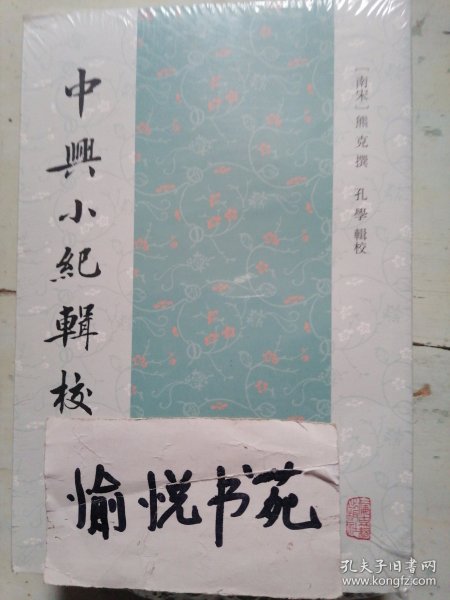 中興小紀輯校
[南宋]熊克撰 孔學輯校
愉悦书苑
孔夫子旧书网
www.kongfz.com